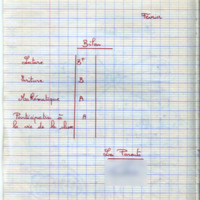 Février
Bilan
Lecture B+
Ecriture B
Mathématiques A
Participation à A
la vie de la classe
Les Parents